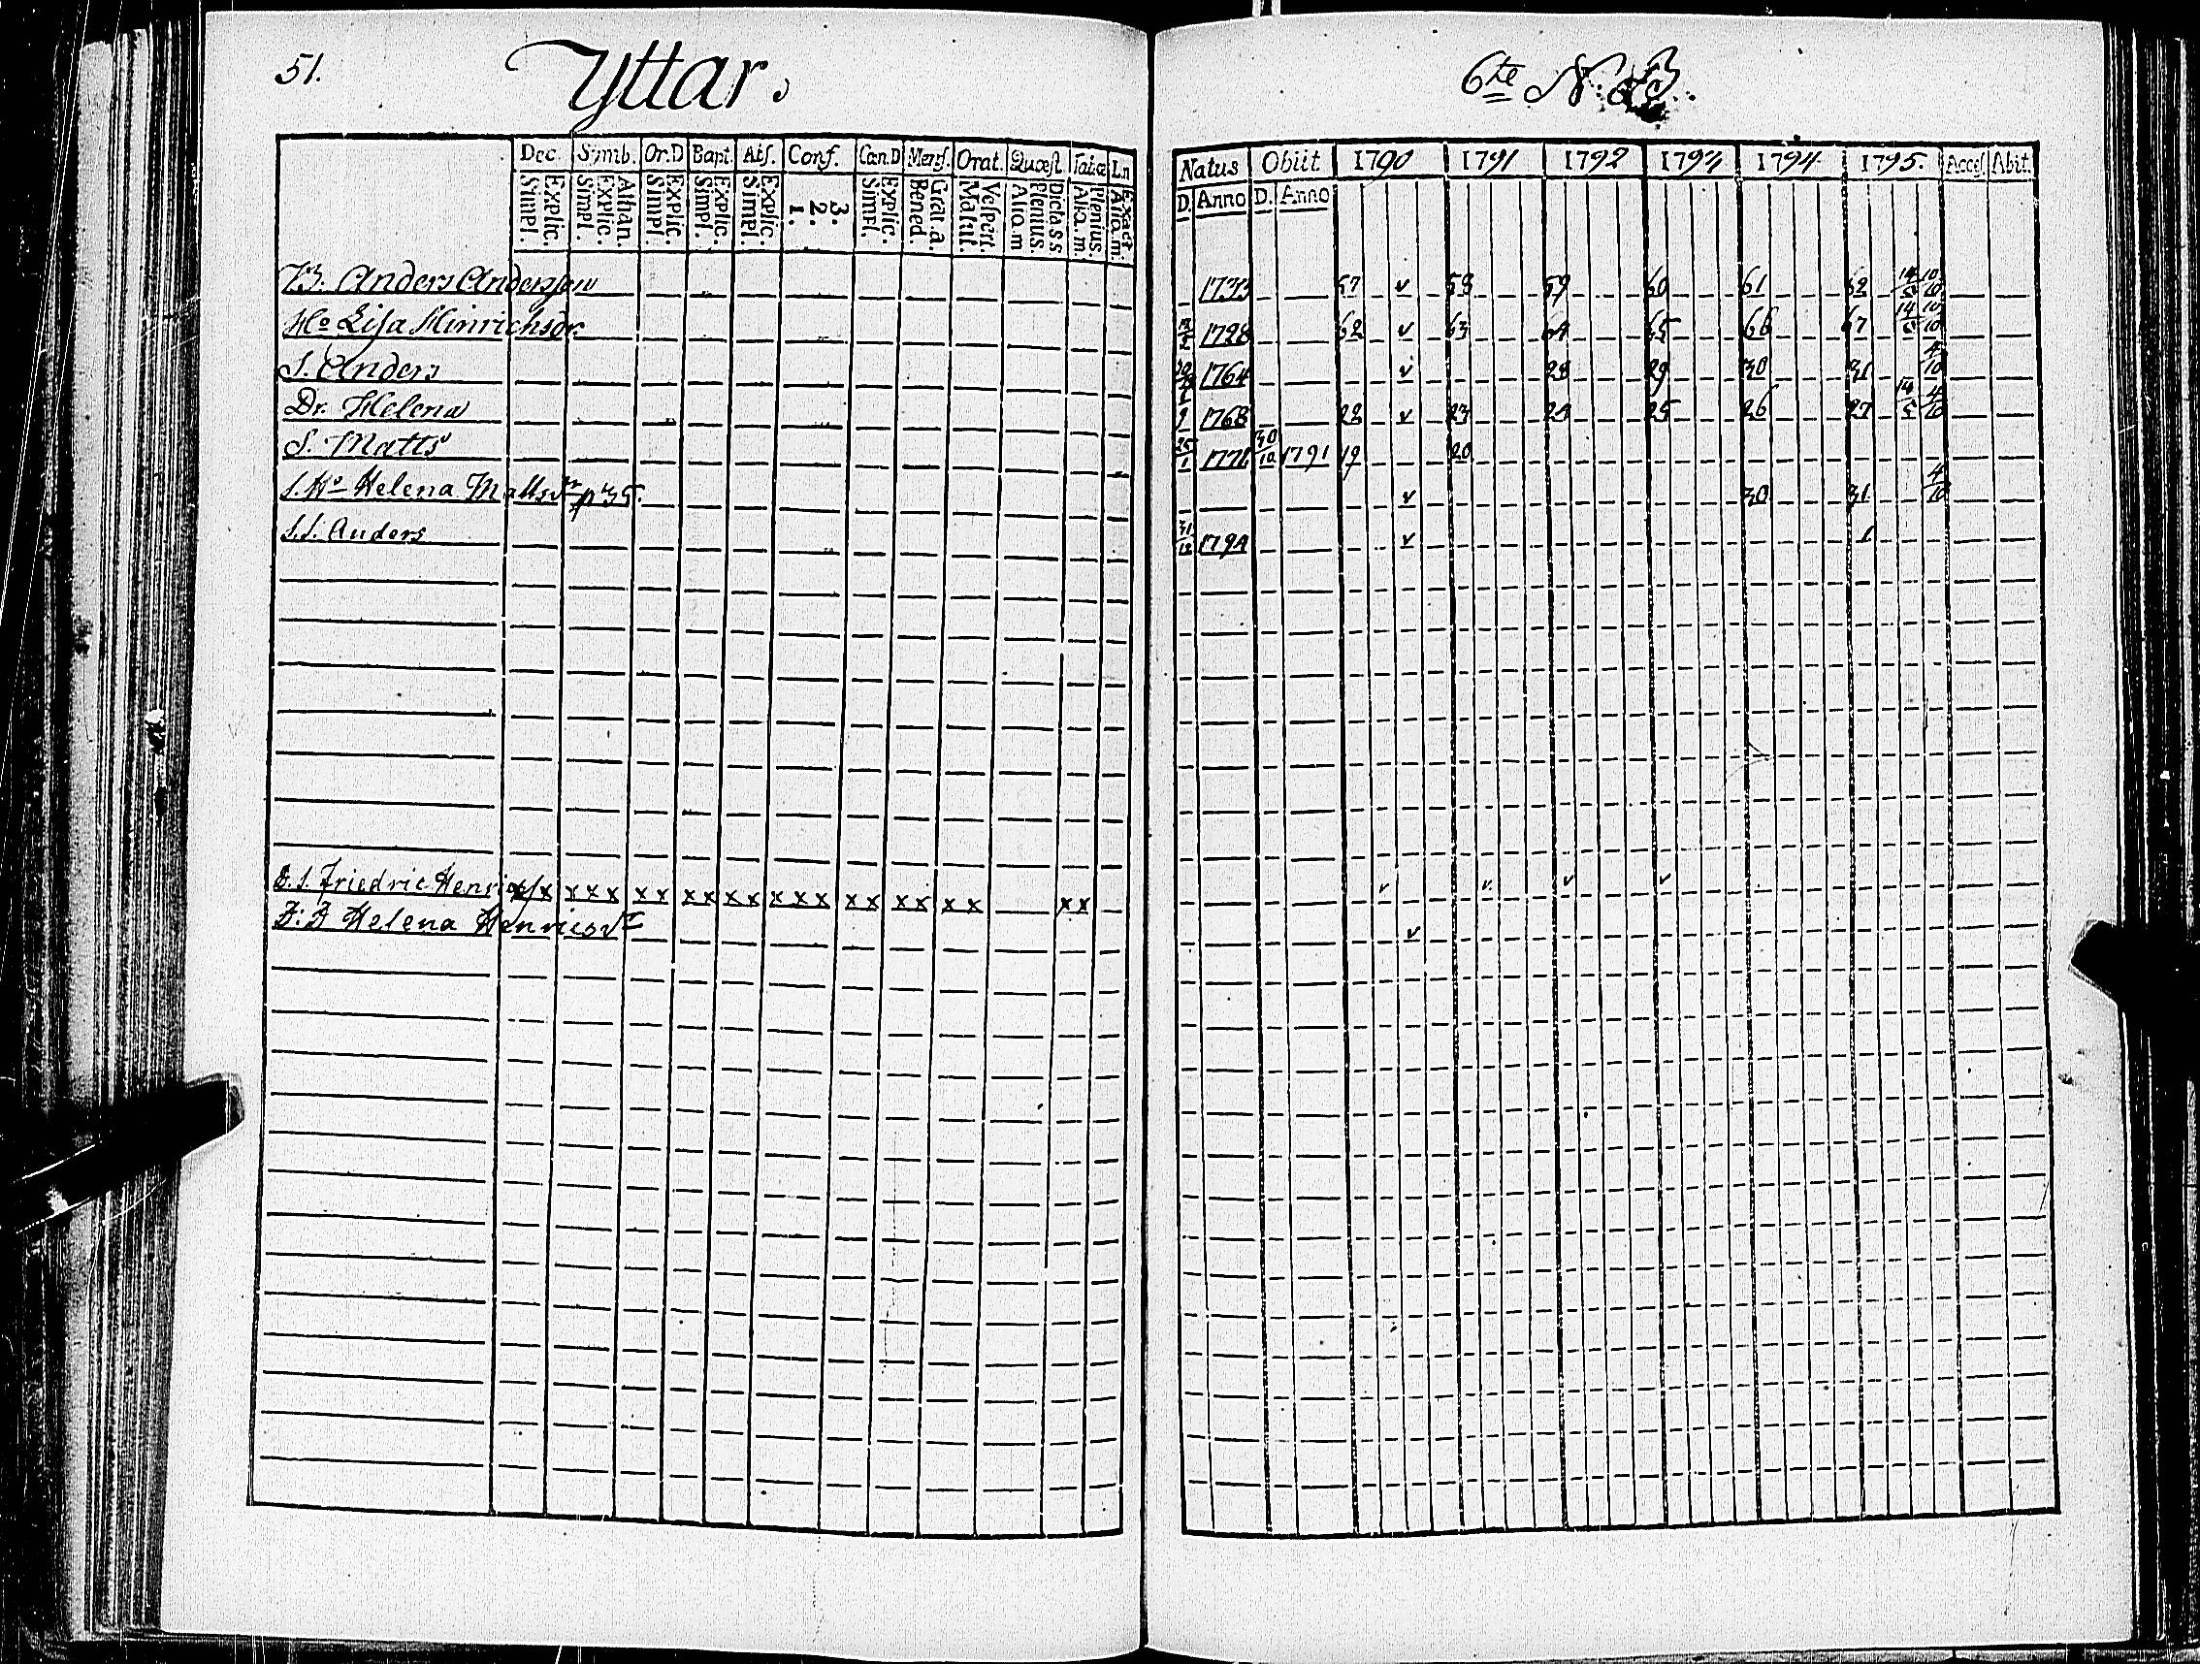 51. Yttar.
6te N. 13.
Dec. Symb. Or.D Bapt. Abs. Conf. Cœn.D Mens. Orat. Quæst. Tabcæ Ln
Explic. Simpl. Athan. Explic. Simpl. Explic. Simpl. Explic. Simpl. Explic. Simpl. 3. 2. 1. Explic. Simpl. Grat. a. Bened. Vespert. Matut. Dicta s s Plenius. Aliq.m Plenius. Aliq.m. Exact Aliq.m.
Natus Obiit 1790 1791 1792 1793 1794 1795. Acces. Abit.
D. Anno D. Anno
B. Anders Andersson 1733 57 v 58 59 60 61 62 14/5 10/10
Ho Lisa Hinrichsdr. 1728 62 v 63 64 65 66 67 14/5 10/10
S. Anders 1764 v 28 29 30 31 4/10
Dr. Helena 1768 22 v 23 24 25 26 27 14/5 4/10
S. Matts 25/1 1771 30/10 1791 19 20
S. Ho Helena Mattsdr p 35. v 30 31 4/10
S.S. Anders 31/12 1794 v 1
E. S. Friedric Henrics x x x x x x x x x x x x x x x x x x x x x x v v v v
D: D Helena Henricsdr v